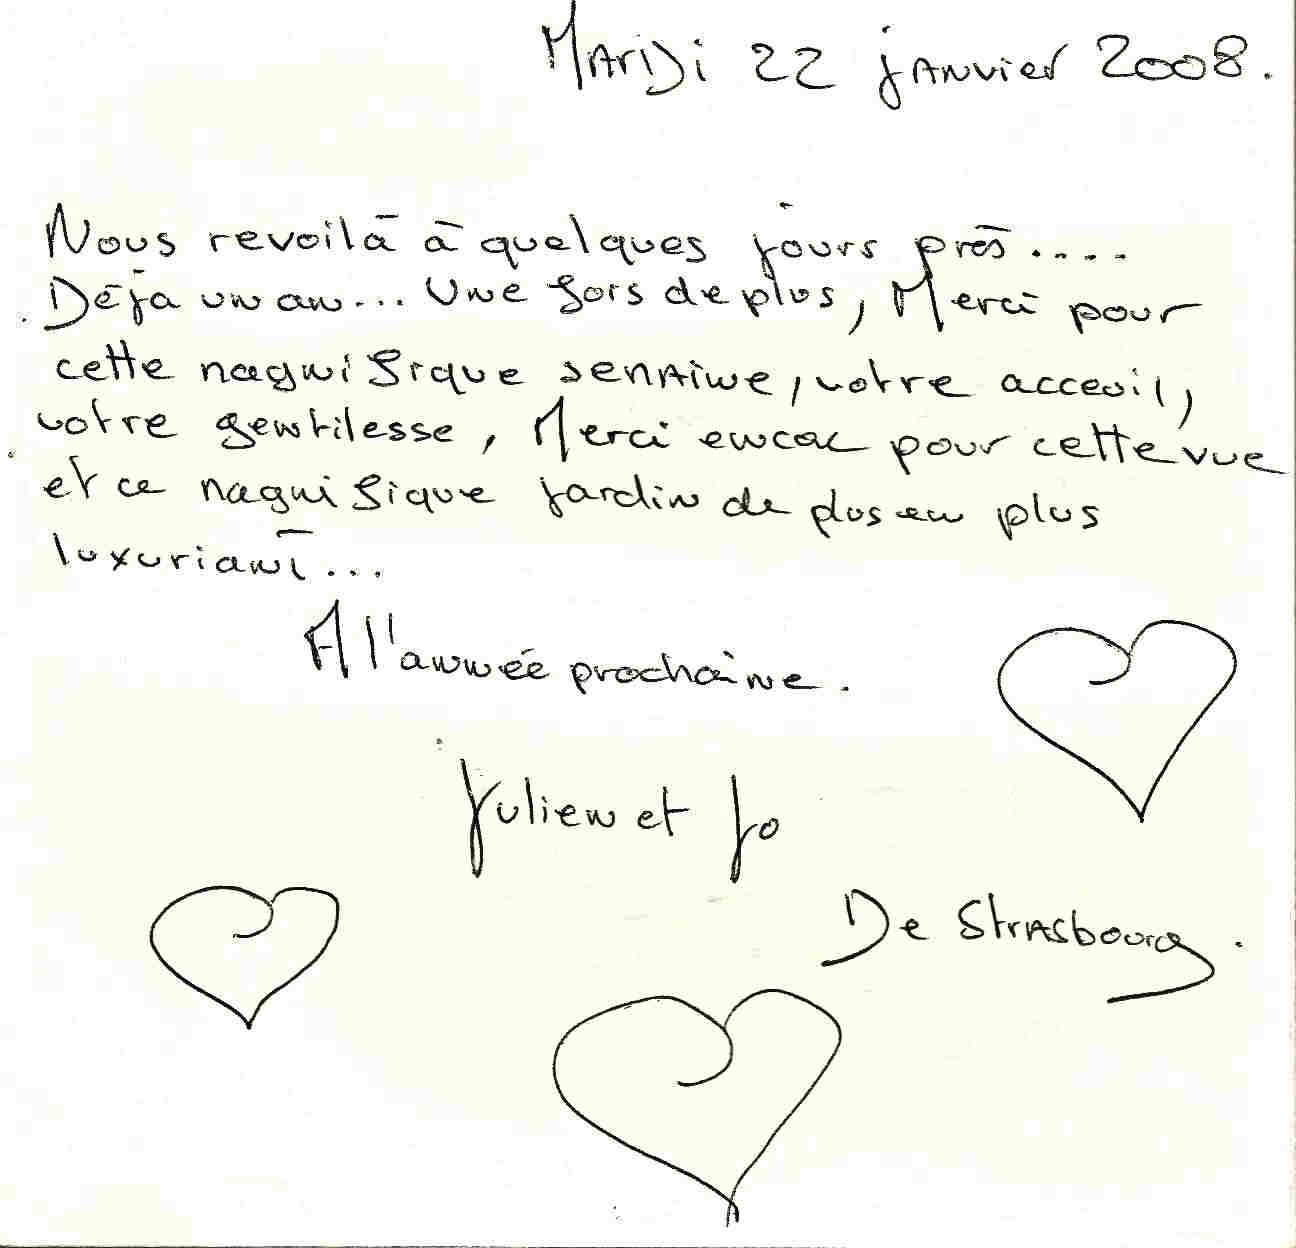 Mardi 22 janvier 2008.
Nous revoilà à quelques jours près....
Déja un an... Une fois de plus, Merci pour
cette magnifique semaine, votre acceuil,
votre gentilesse, Merci encore pour cette vue
et ce magnifique jardin de plus en plus
luxuriant...
A l'année prochaine.
Julien et Jo
De Strasbourg.